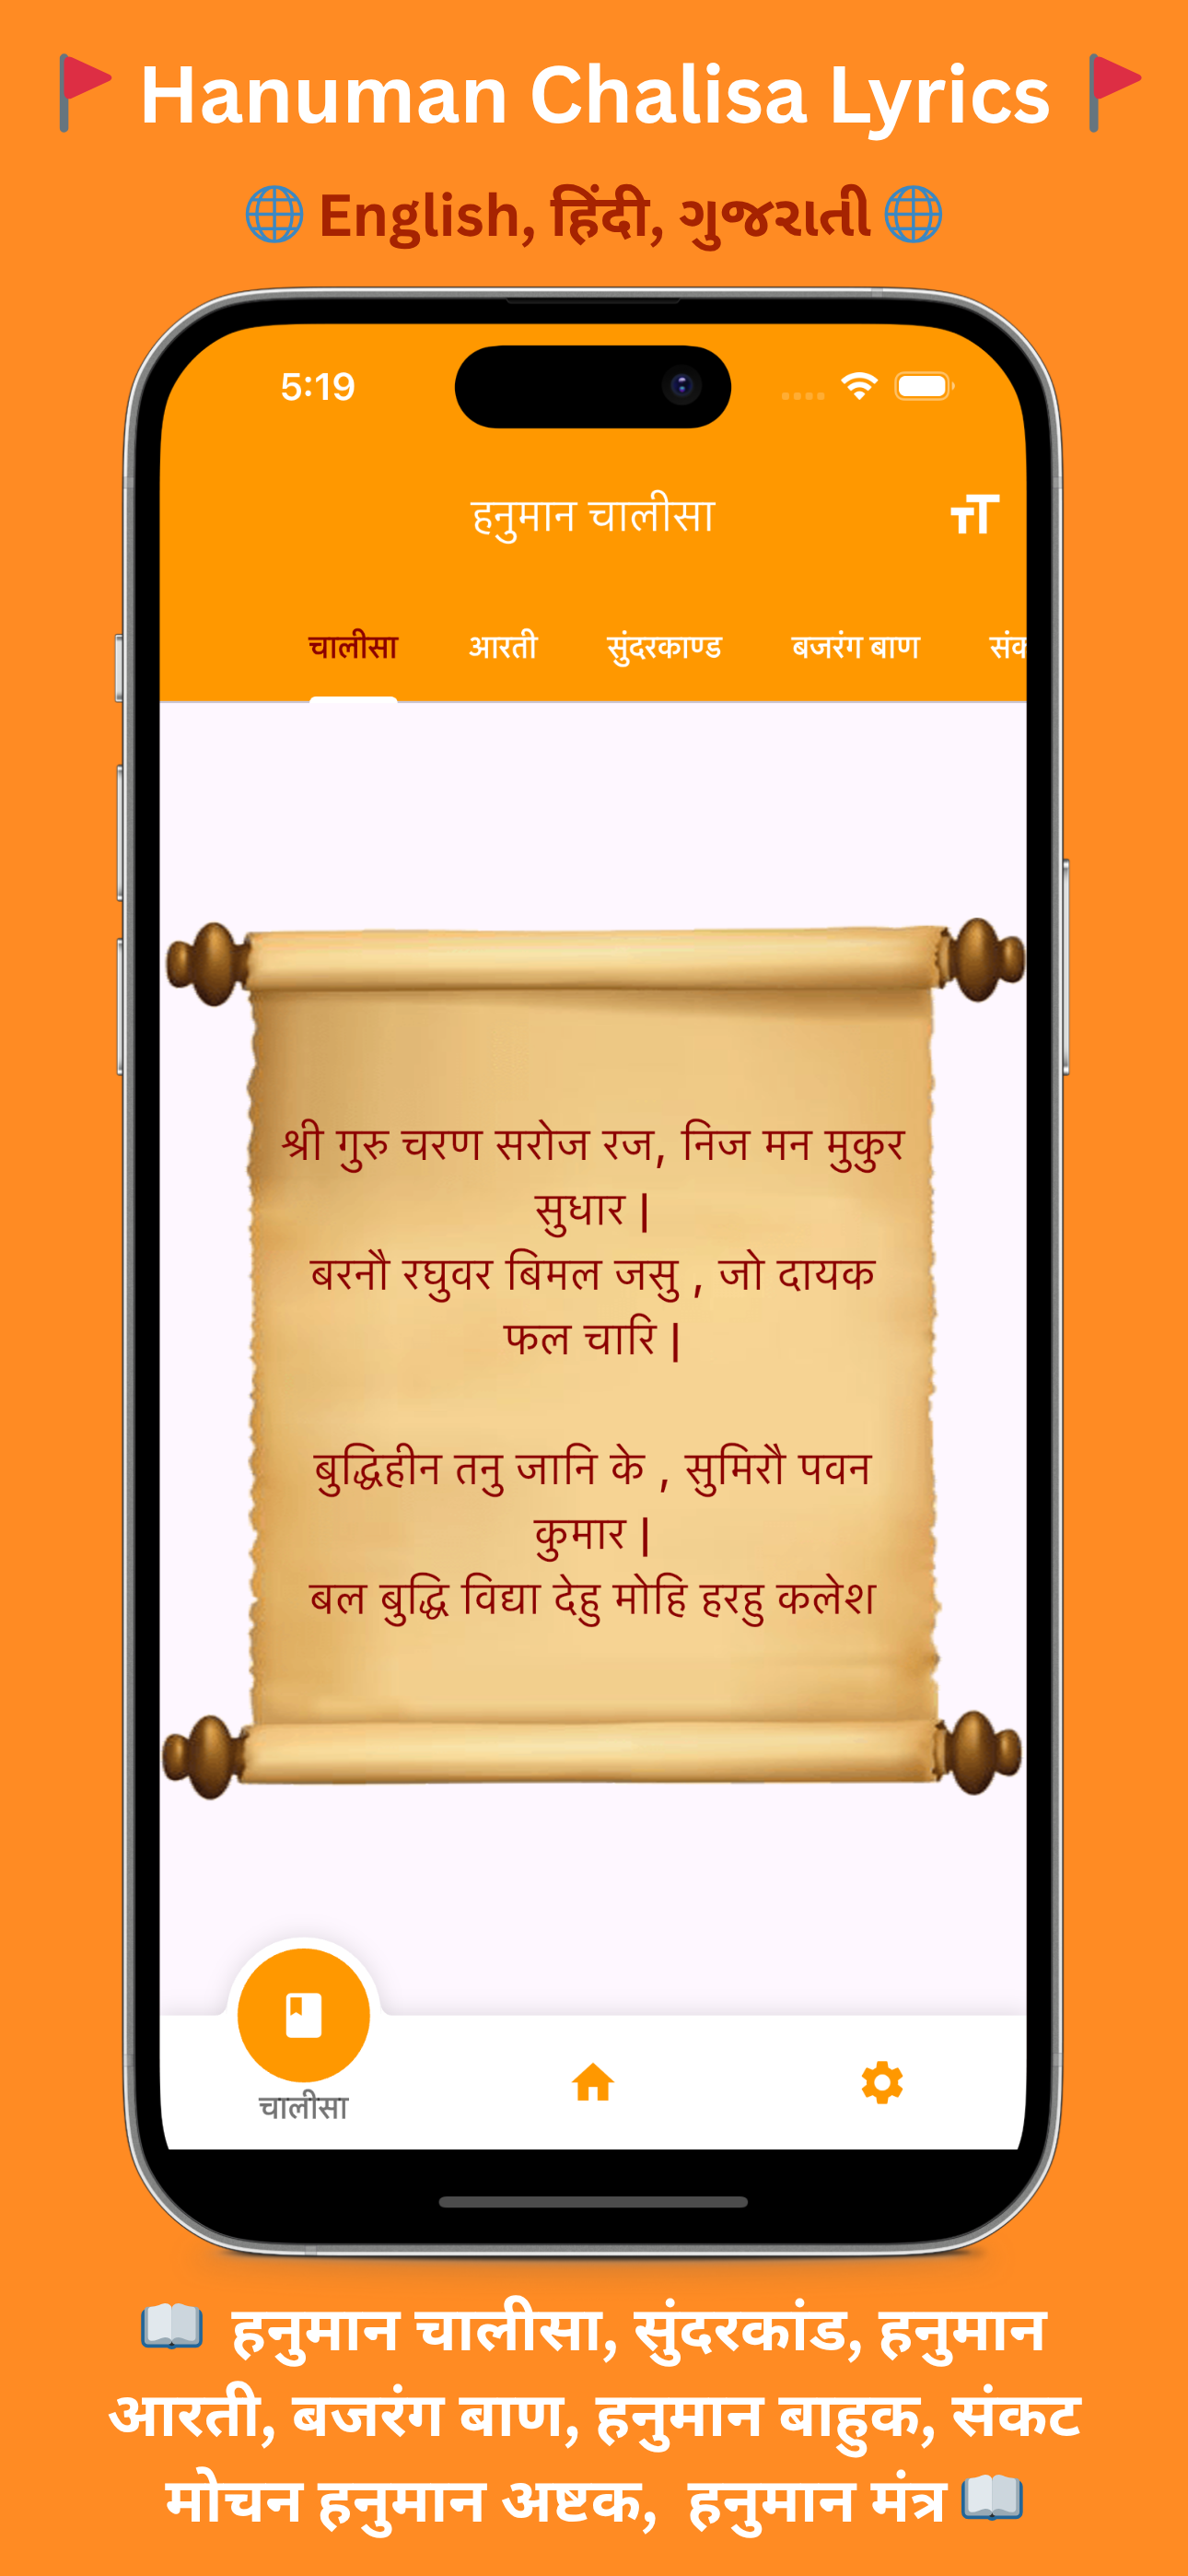 Hanuman Chalisa Lyrics
English, हिंदी, ગુજરાતી
5:19
हनुमान चालीसा
चालीसा आरती सुंदरकाण्ड बजरंग बाण
श्री गुरु चरण सरोज रज, निज मन मुकुर
सुधार |
बरनौ रघुवर बिमल जसु , जो दायक
फल चारि |
बुद्धिहीन तनु जानि के , सुमिरौ पवन
कुमार |
बल बुद्धि विद्या देहु मोहि हरहु कलेश
चालीसा
हनुमान चालीसा, सुंदरकांड, हनुमान
आरती, बजरंग बाण, हनुमान बाहुक, संकट
मोचन हनुमान अष्टक, हनुमान मंत्र